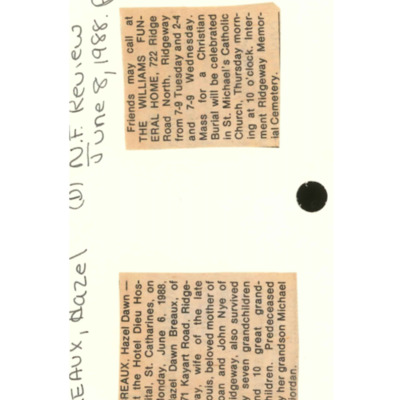 EAUX, Hazel (D) N.F. Review
June 8, 1988.
REAUX, Hazel Dawn —
t the Hotel Dieu Hos-
ital, St. Catharines, on
onday, June 6, 1988.
azel Dawn Breaux, of
71 Kayart Road, Ridge-
ay, wife of the late
ouis, beloved mother of
oan and John Nye of
idgeway, also survived
y seven grandchildren
nd 10 great grand-
hildren. Predeceased
y her grandson Michael
ordan.
Friends may call at
THE WILLIAMS FUN-
ERAL HOME, 722 Ridge
Road North, Ridgeway
from 7-9 Tuesday and 2-4
and 7-9 Wednesday.
Mass for a Christian
Burial will be celebrated
in St. Michael's Catholic
Church, Thursday morn-
ing at 10 o'clock. Inter-
ment Ridgeway Memor-
ial Cemetery.